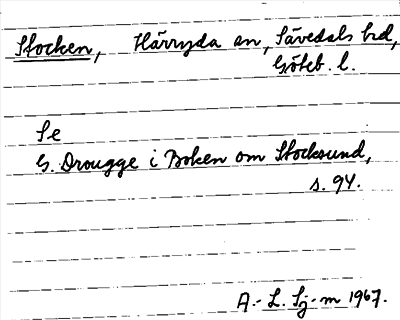 Stocken, Härryda sn, Sävedals hd,
Göteb. l.
Se
G. Drougge i Boken om Stocksund,
s. 94.
A.-L. Sj-m 1967.